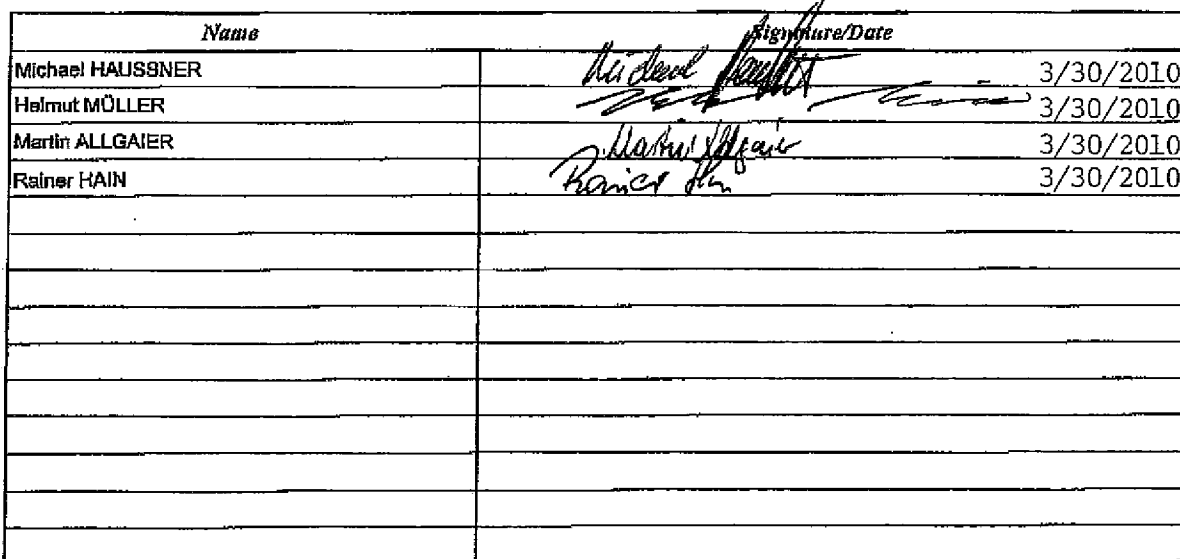 Name Signature/Date
Michael HAUSSNER Michael 3/30/2010
Helmut MÜLLER 3/30/2010
Martin ALLGAIER Martin Allgaier 3/30/2010
Rainer HAIN Rainer Hain 3/30/2010